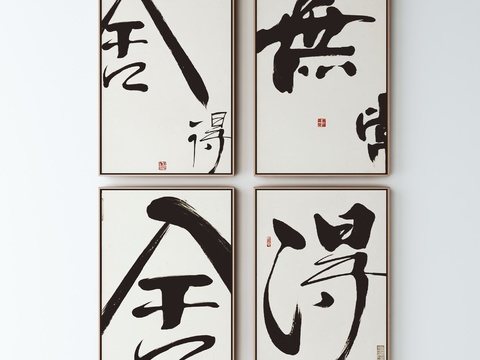 舍
得
無
舍
得